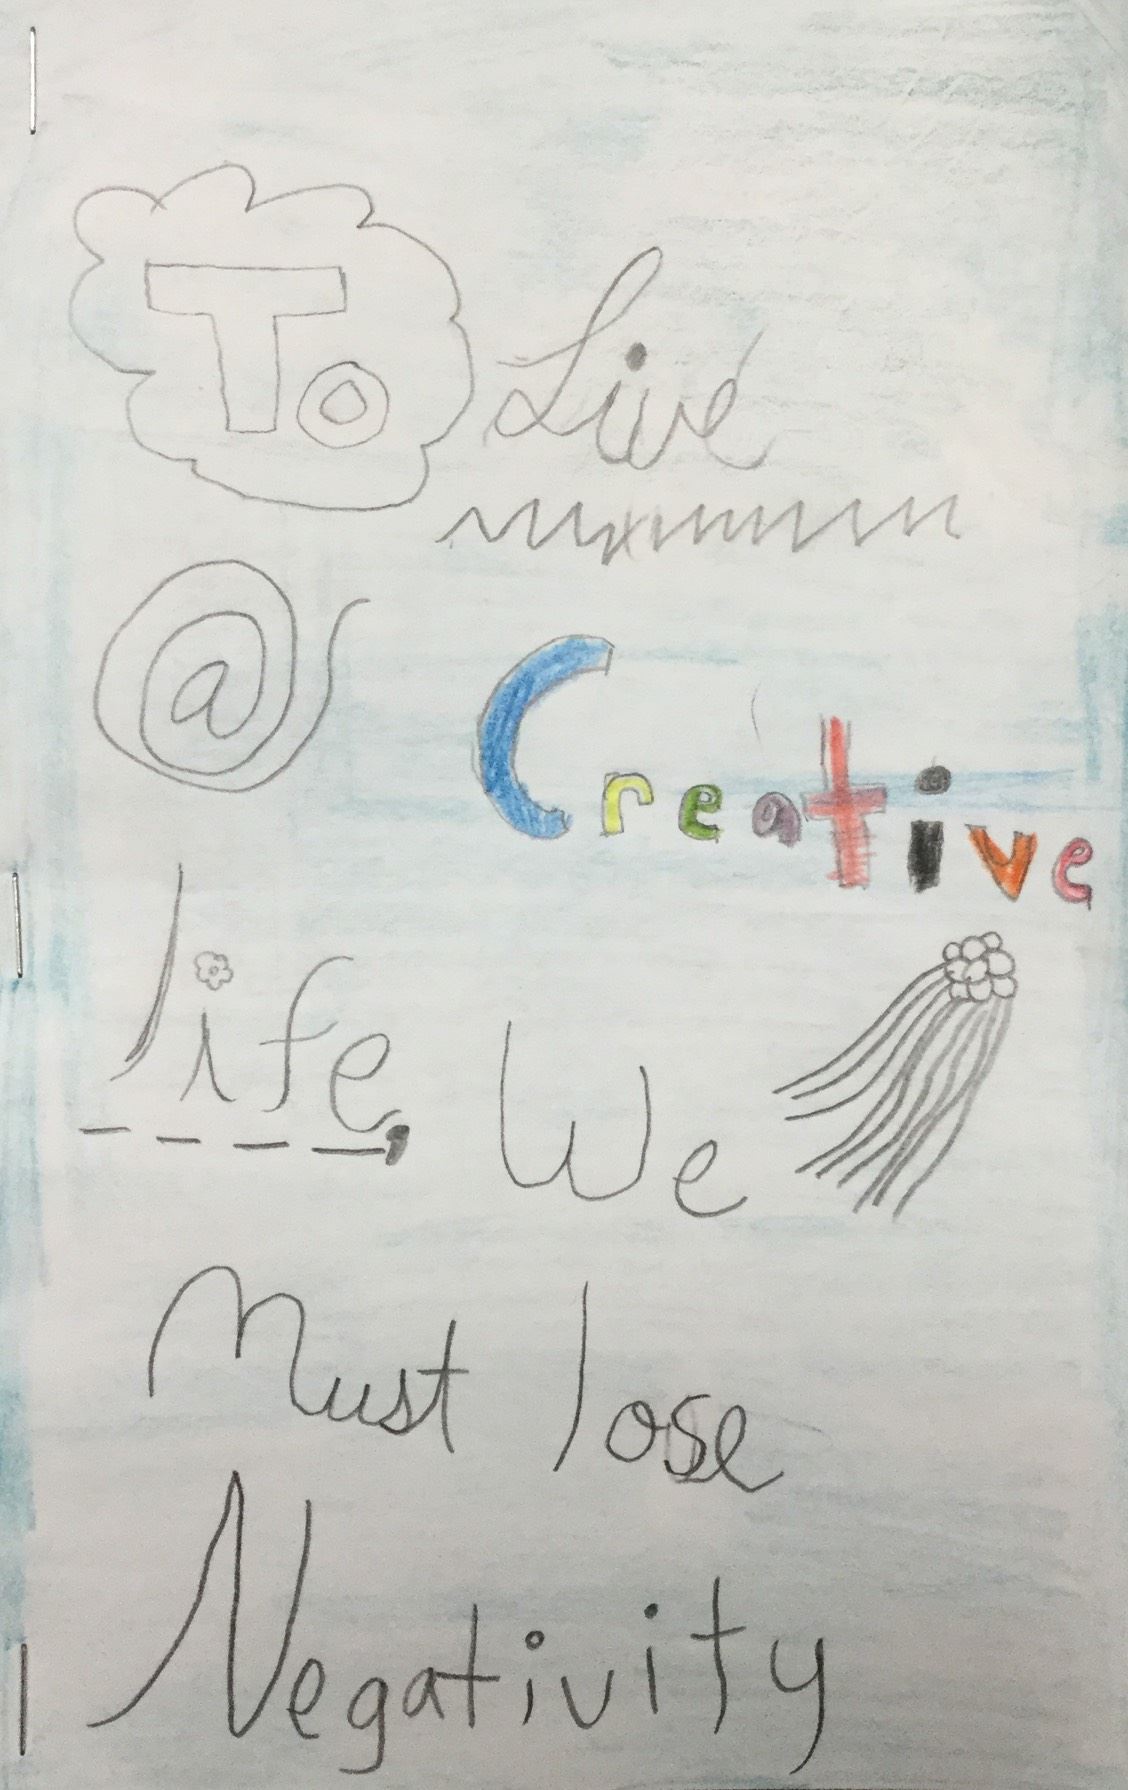 To Live
a Creative
life, We
Must lose
Negativity